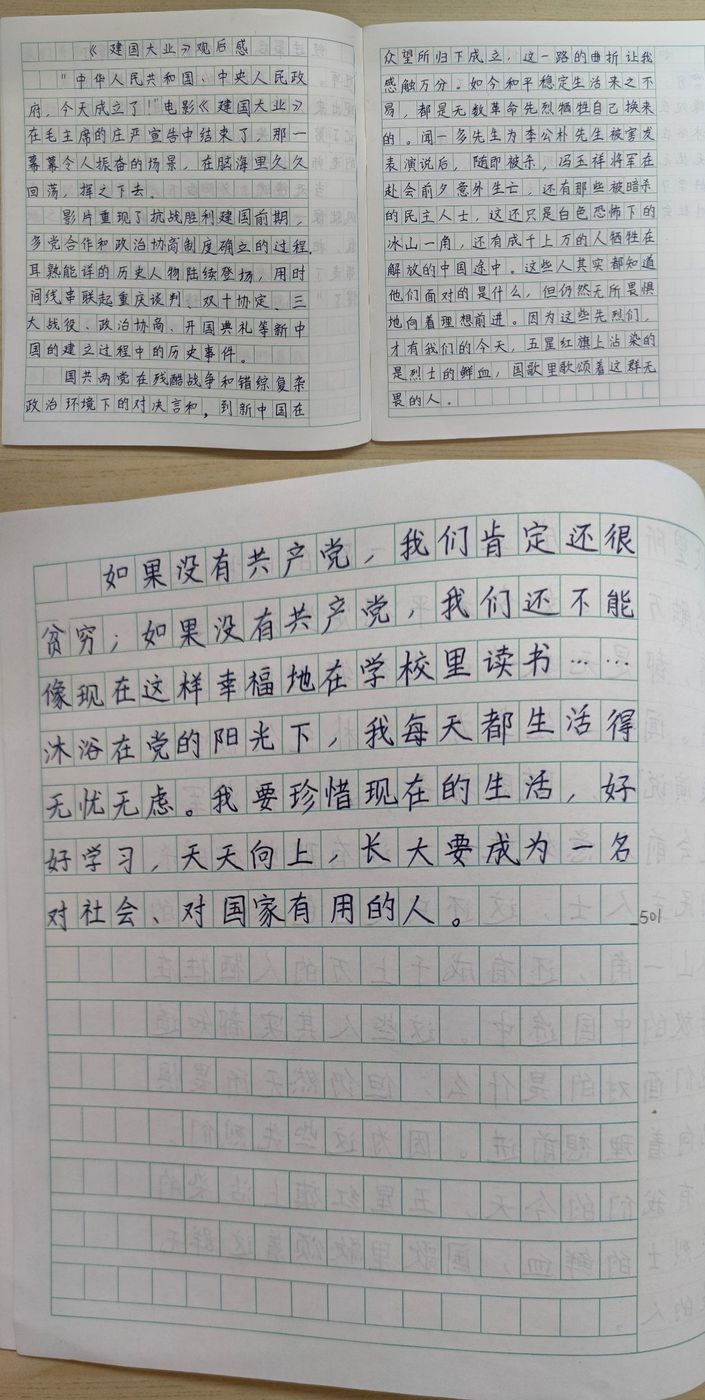 《建国大业》观后感
"中华人民共和国、中央人民政
府,今天成立了!"电影《建国大业》
在毛主席的庄严宣告中结束了,那一
幕幕令人振奋的场景,在脑海里久久
回荡,挥之下去。
影片重现了抗战胜利建国前期,
多党合作和政治协商制度确立的过程.
耳熟能详的历史人物陆续登场,用时
间线串联起重庆谈判、双十协定、三
大战役、政治协商、开国典礼等新中
国的建立过程中的历史事件。
国共两党在残酷战争和错综复杂
政治环境下的对决言和,到新中国在
众望所归下成立,这一路的曲折让我
感触万分。如今和平稳定生活来之不
易,都是无数革命先烈牺牲自己换来
的。闻一多先生为李公朴先生被害发
表演说后,随即被杀,冯玉祥将军在
赴会前夕意外生亡,还有那些被暗杀
的民主人士,这还只是白色恐怖下的
冰山一角,还有成千上万的人牺牲在
解放的中国途中。这些人其实都知道
他们面对的是什么,但仍然无所畏惧
地向着理想前进。因为这些先烈们,
才有我们的今天,五星红旗上沾染的
是烈士的鲜血,国歌里歌颂着这群无
畏的人。
如果没有共产党,我们肯定还很
贫穷;如果没有共产党,我们还不能
像现在这样幸福地在学校里读书……
沐浴在党的阳光下,我每天都生活得
无忧无虑。我要珍惜现在的生活,好
好学习,天天向上,长大要成为一名
对社会、对国家有用的人。
501